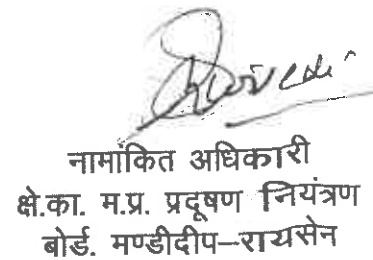 नामांकित अधिकारी
क्षे.का. म.प्र. प्रदूषण नियंत्रण
बोर्ड. मण्डीदीप–रायसेन